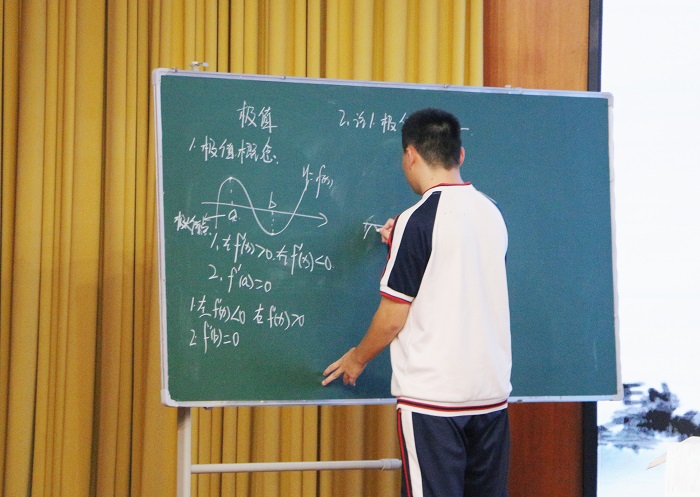 极值
1. 极值概念:
y=f(x)
a
b
1. 左f'(x)>0 右f'(x)<0.
2. f'(a)=0
1. 左f'(x)<0 右f'(x)>0
2. f'(b)=0
2.
1. 极
EN